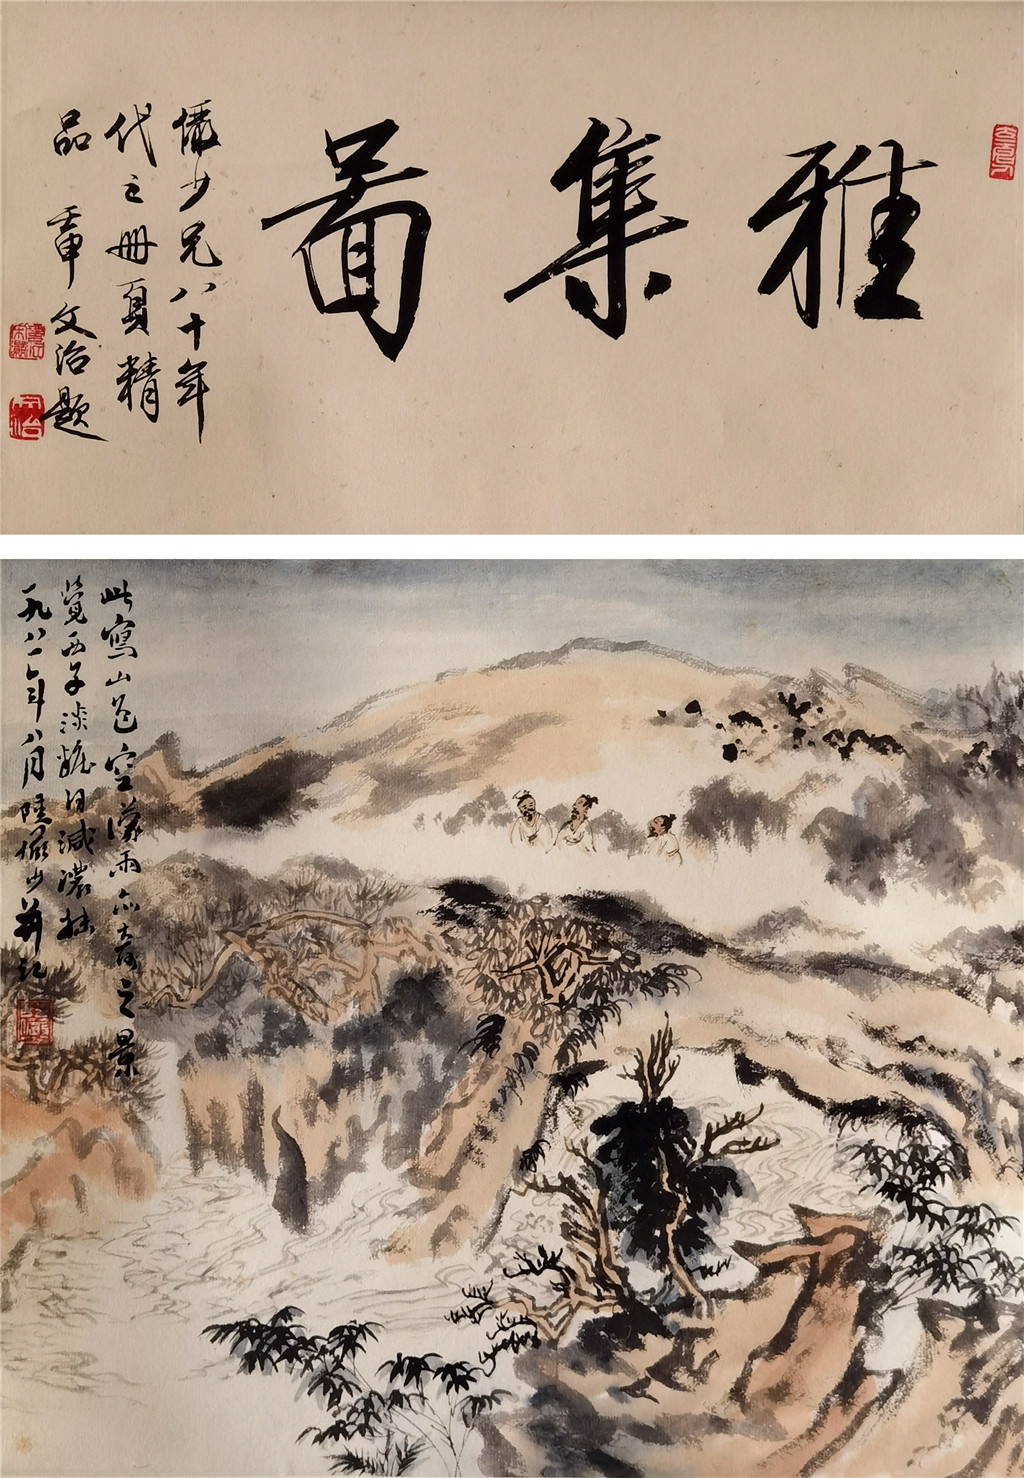 雅集圖
儼少兄八十年
代之册頁精
品 壬申 文治題
此寫山色空濛雨亦奇之景
覺西子淡糚自減濃抹
一九八一年八月陸儼少並記